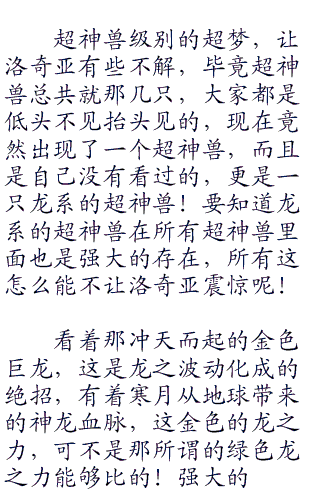 超神兽级别的超梦，让
洛奇亚有些不解，毕竟超神
兽总共就那几只，大家都是
低头不见抬头见的，现在竟
然出现了一个超神兽，而且
是自己没有看过的，更是一
只龙系的超神兽！要知道龙
系的超神兽在所有超神兽里
面也是强大的存在，所有这
怎么能不让洛奇亚震惊呢！
看着那冲天而起的金色
巨龙，这是龙之波动化成的
绝招，有着寒月从地球带来
的神龙血脉，这金色的龙之
力，可不是那所谓的绿色龙
之力能够比的！强大的